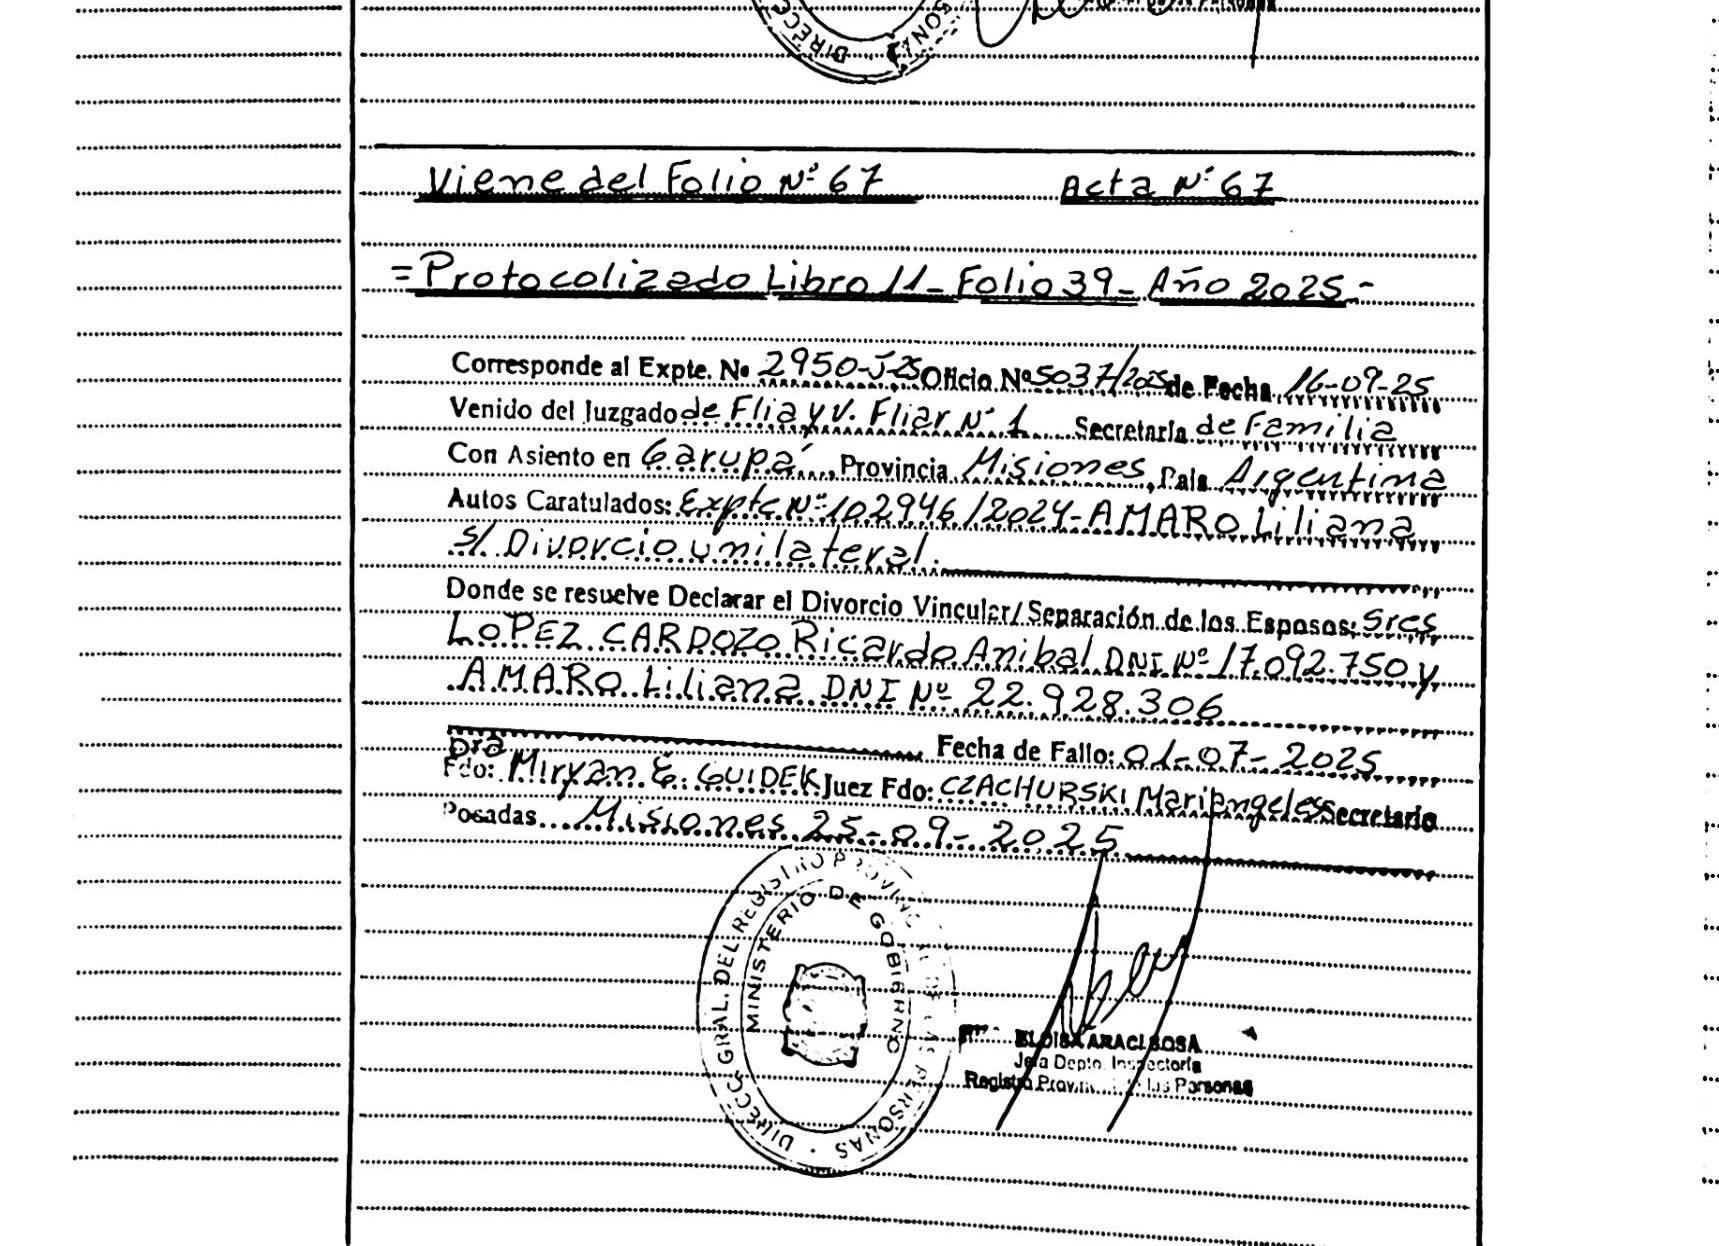 DIRECC
SONAS
Viene del Folio Nº 67 Acta Nº 67
= Protocolizado Libro 11 - Folio 39 - Año 2025 -
Corresponde al Expte. Nº 2950-J-25 Oficio Nº 5037/2025 de Fecha 16-09-25
Venido del Juzgado de Flia y V. Fliar Nº 1 Secretaria de Familia
Con Asiento en Garupá, Provincia Misiones, Pais Argentina
Autos Caratulados: Expte Nº 102946/2024 - AMARO Liliana
s/ Divorcio unilateral.
Donde se resuelve Declarar el Divorcio Vincular/Separación de los Esposos: Sres
LOPEZ CARDOZO Ricardo Anibal DNI Nº 17.092.750 y
AMARO Liliana DNI Nº 22.928.306
Fecha de Fallo: 01-07-2025
Dra
Fdo: Miryan E. GUIDEK Juez Fdo: CZACHURSKI Mariangeles Secretario
Posadas... Misiones 25-09-2025
DIRECC. GRAL. DEL REGISTRO PROVINCIAL DE LAS PERSONAS
MINISTERIO DE GOBIERNO
ELOISA ARACI SOSA
Jefa Depto. Inspectoría
Registro Provincial de las Personas